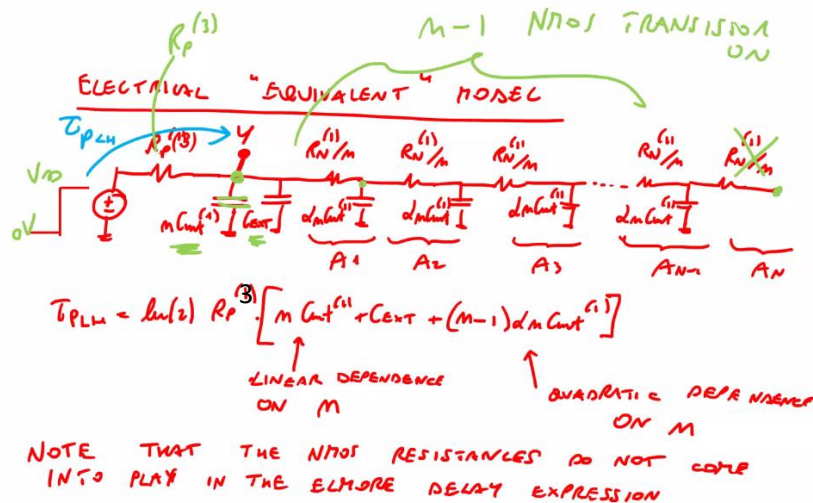 Rp^(3)
M-1 NMOS TRANSISTOR
ON
ELECTRICAL "EQUIVALENT" MODEL
τpLH
Y
RN^(1)/M RN^(1)/M RN^(1)/M RN^(1)/M RN^(1)/M
VDD
0V
mCint^(1) CEXT αmCint^(1) αmCint^(1) αmCint^(1) αmCint^(1)
A1 A2 A3 AN-1 AN
τpLH = ln(2) Rp^(3) · [m Cint^(1) + CEXT + (M-1) αm Cint^(1)]
LINEAR DEPENDENCE
ON M
QUADRATIC DEPENDENCE
ON M
NOTE THAT THE NMOS RESISTANCES DO NOT COME
INTO PLAY IN THE ELMORE DELAY EXPRESSION